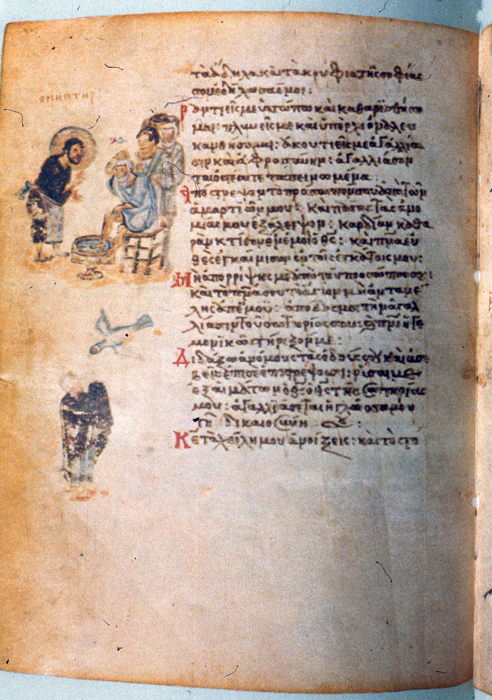 Ο ΝΙΠΤΗΡ
τὰ ἄδηλα καὶ τὰ κρύφια τῆς σοφίας
σου ἐδήλωσάς μοι:
Ραντιεῖς με ὑσσώπω καὶ καθαρισθήσο
μαι: πλυνεῖς με καὶ ὑπὲρ χιόνα λευ
κανθήσομαι: ἀκουτιεῖς με ἀγαλλία
σιν καὶ εὐφροσύνην: ἀγαλλιάσον
ται ὀστέα τεταπεινωμένα:
Ἀπόστρεψον τὸ πρόσωπόν σου ἀπὸ τῶν
ἁμαρτιῶν μου: καὶ πάσας τὰς ἀνο
μίας μου ἐξάλειψον: καρδίαν καθα
ρὰν κτίσον ἐν ἐμοὶ ὁ θς: καὶ πνα εὐ
θὲς ἐγκαίνισον ἐν τοῖς ἐγκάτοις μου:
Μὴ ἀπορρίψης με ἀπὸ τοῦ προσώπου σου:
καὶ τὸ πνα σου τὸ ἅγιον μὴ ἀντανέ
λης ἀπ' ἐμοῦ: ἀπόδος μοι τὴν ἀγαλ
λίασιν τοῦ σωτηρίου σου: καὶ πνι ἡγε
μονικῶ στήριξόν με:
Διδάξω ἀνόμους τὰς ὁδούς σου καὶ ἀσε
βεῖς ἐπὶ σὲ ἐπιστρέψουσι: ῥῦσαί με
ἐξ αἱμάτων ὁ θς ὁ θς τῆς σωτηρίας
μου: ἀγαλλιάσεται ἡ γλῶσσά μου
τὴν δικαιοσύνην σου:
Κε τὰ χείλη μου ἀνοίξεις: καὶ τὸ στό